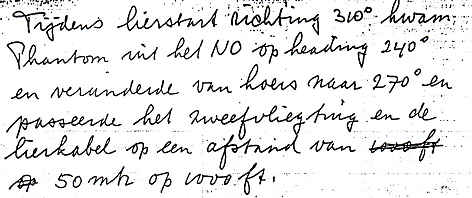 Tijdens lierstart richting 310° kwam
Phantom uit het NO op heading 240°
en veranderde van koers naar 270° en
passeerde het zweefvliegtuig en de
lierkabel op een afstand van 1000ft
op 50 mtr op 1000 ft.